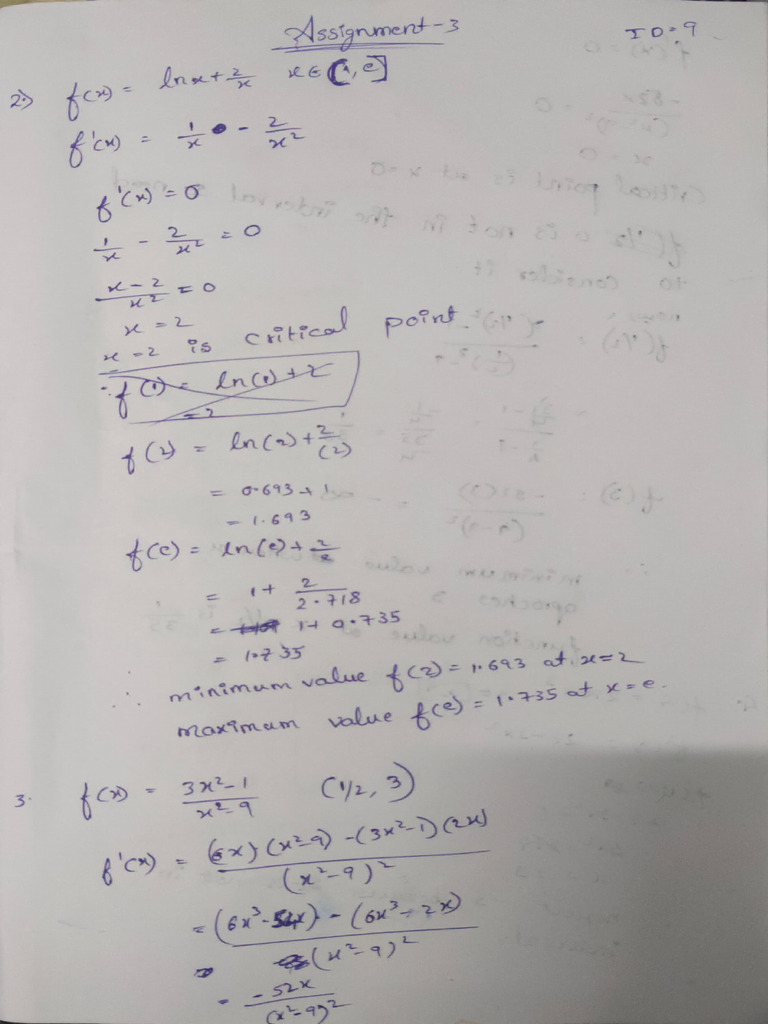 Assignment-3
ID=9
2.) f(x) = lnx + 2/x x ∈ (1, e]
f'(x) = 1/x - 2/x²
f'(x) = 0
1/x - 2/x² = 0
x-2/x² = 0
x = 2
x = 2 is critical point
∴ f(1) = ln(1) + 2
= 2
f(2) = ln(2) + 2/(2)
= 0.693 + 1
= 1.693
f(e) = ln(e) + 2/e
= 1 + 2/2.718
= 1 + 0.735
= 1.735
∴ minimum value f(2) = 1.693 at x=2
maximum value f(e) = 1.735 at x=e.
3. f(x) = 3x²-1/x²-9 (1/2, 3)
f'(x) = (6x)(x²-9) - (3x²-1)(2x)/(x²-9)²
= (6x³-54x) - (6x³-2x)/(x²-9)²
= -52x/(x²-9)²